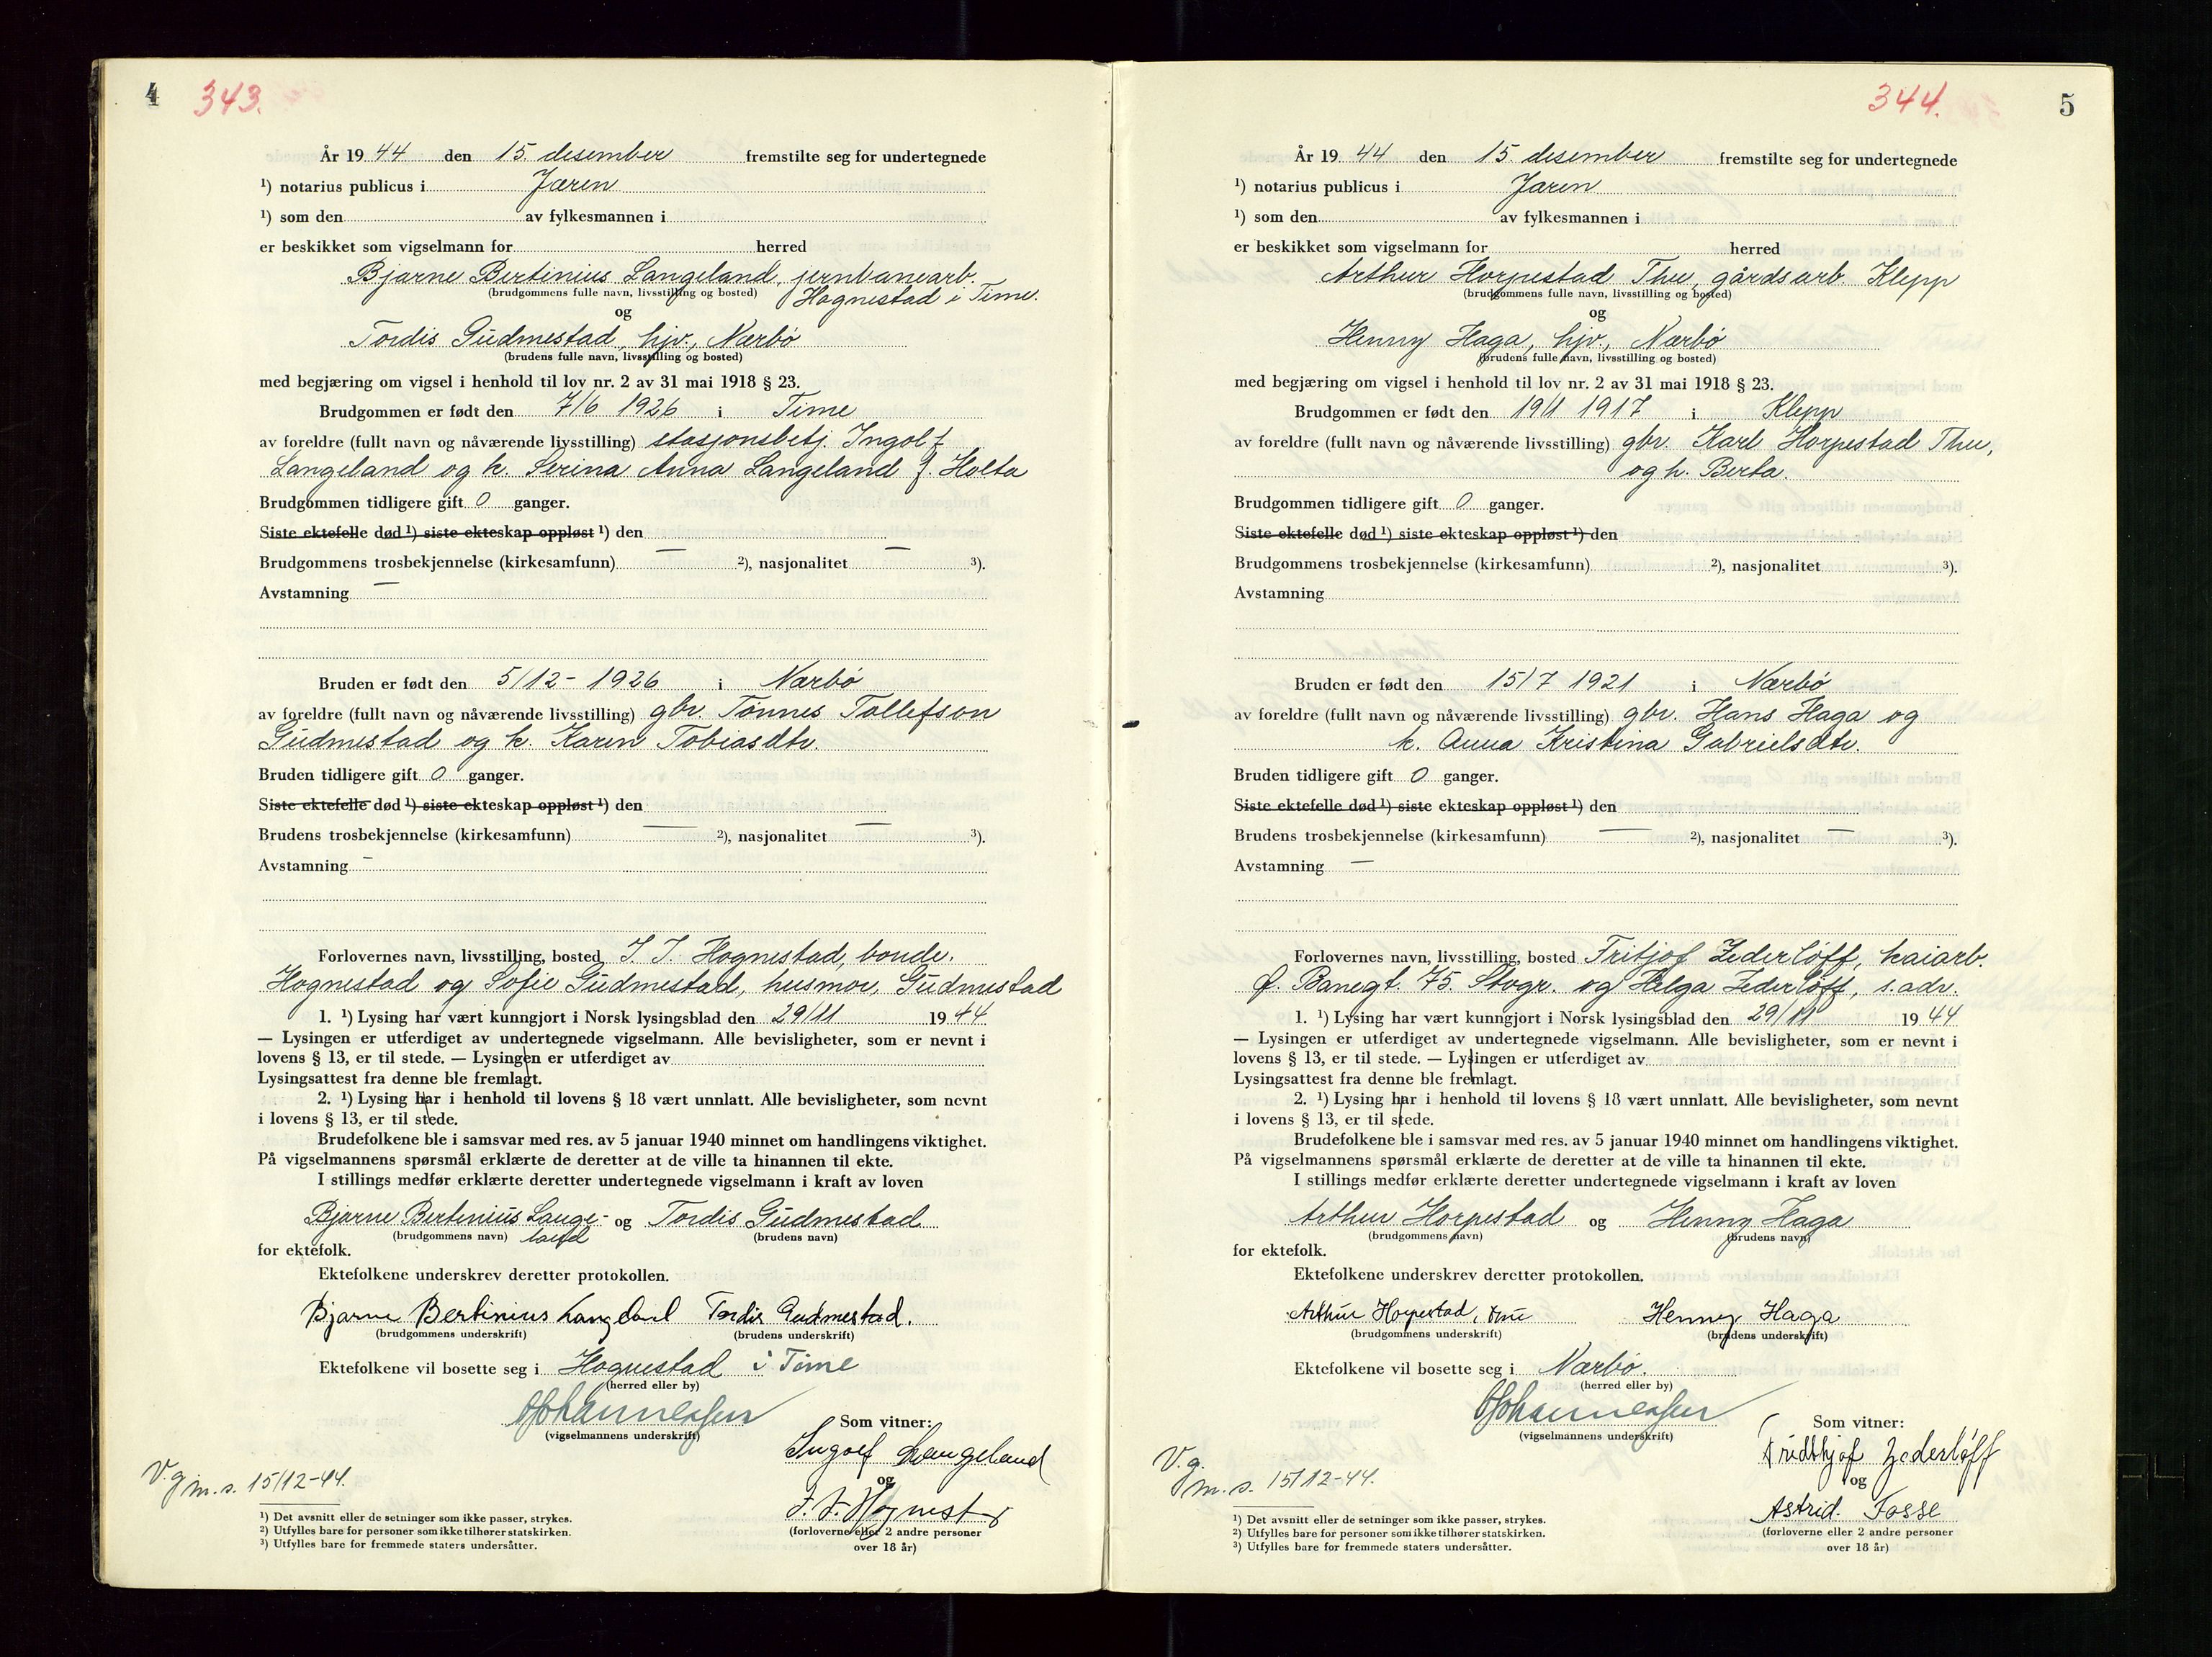 4 343.
År 19 44 den 15. desember fremstilte seg for undertegnede
¹) notarius publicus i Jæren
¹) som den av fylkesmannen i
er beskikket som vigselmann for herred
Bjarne Bertinius Langeland, jernbanearb.
(brudgommens fulle navn, livsstilling og bosted) Hognestad i Time.
og
Tordis Gudmestad, hjv., Nærbø
(brudens fulle navn, livsstilling og bosted)
med begjæring om vigsel i henhold til lov nr. 2 av 31 mai 1918 § 23.
Brudgommen er født den 7/6 1926 i Time
av foreldre (fullt navn og nåværende livsstilling) stasjonsbetj. Ingolf
Langeland og h. Serina Anna Langeland f. Holta
Brudgommen tidligere gift 0 ganger.
Siste ektefelle død ¹) siste ekteskap oppløst ¹) den
Brudgommens trosbekjennelse (kirkesamfunn) — ²), nasjonalitet — ³).
Avstamning —
Bruden er født den 5/12 - 1926 i Nærbø
av foreldre (fullt navn og nåværende livsstilling) gbr. Tønnes Tollefson
Gudmestad og h. Karen Tobiasdtr.
Bruden tidligere gift 0 ganger.
Siste ektefelle død ¹) siste ekteskap oppløst ¹) den
Brudens trosbekjennelse (kirkesamfunn) — ²), nasjonalitet — ³).
Avstamning —
Forlovernes navn, livsstilling, bosted J. J. Hognestad, bonde.
Hognestad og Sofie Gudmestad, husmor, Gudmestad
1. ¹) Lysing har vært kunngjort i Norsk lysingsblad den 29/11 19 44
— Lysingen er utferdiget av undertegnede vigselmann. Alle bevisligheter, som er nevnt i
lovens § 13, er til stede. — Lysingen er utferdiget av
Lysingsattest fra denne ble fremlagt.
2. ¹) Lysing har i henhold til lovens § 18 vært unnlatt. Alle bevisligheter, som nevnt
i lovens § 13, er til stede.
Brudefolkene ble i samsvar med res. av 5 januar 1940 minnet om handlingens viktighet.
På vigselmannens spørsmål erklærte de deretter at de ville ta hinannen til ekte.
I stillings medfør erklærte deretter undertegnede vigselmann i kraft av loven
Bjarne Bertinius Lange- og Tordis Gudmestad
(brudgommens navn) land (brudens navn)
for ektefolk.
Ektefolkene underskrev deretter protokollen.
Bjarne Bertinius Langeland Tordis Gudmestad.
(brudgommens underskrift) (brudens underskrift)
Ektefolkene vil bosette seg i Hognestad i Time
(herred eller by)
(vigselmannens underskrift)
Som vitner:
Ingolf Langeland
og
J. J. Hognest
(forloverne eller 2 andre personer
over 18 år)
V.g.
m.s. 15/12-44.
¹) Det avsnitt eller de setninger som ikke passer, strykes.
²) Utfylles bare for personer som ikke tilhører statskirken.
³) Utfylles bare for fremmede staters undersåtter.
344. 5
År 19 44 den 15. desember fremstilte seg for undertegnede
¹) notarius publicus i Jæren
¹) som den av fylkesmannen i
er beskikket som vigselmann for herred
Arthur Horpestad Thu, gårdsarb. Klepp
(brudgommens fulle navn, livsstilling og bosted)
og
Henny Haga, hjv., Nærbø
(brudens fulle navn, livsstilling og bosted)
med begjæring om vigsel i henhold til lov nr. 2 av 31 mai 1918 § 23.
Brudgommen er født den 19/1 1917 i Klepp
av foreldre (fullt navn og nåværende livsstilling) gbr. Karl Horpestad Thu,
og h. Berta.
Brudgommen tidligere gift 0 ganger.
Siste ektefelle død ¹) siste ekteskap oppløst ¹) den
Brudgommens trosbekjennelse (kirkesamfunn) ²), nasjonalitet ³).
Avstamning
Bruden er født den 15/7 1921 i Nærbø
av foreldre (fullt navn og nåværende livsstilling) gbr. Hans Haga og
h. Anna Kristina Gabrielsdtr.
Bruden tidligere gift 0 ganger.
Siste ektefelle død ¹) siste ekteskap oppløst ¹) den
Brudens trosbekjennelse (kirkesamfunn) — ²), nasjonalitet — ³).
Avstamning —
Forlovernes navn, livsstilling, bosted Fritjof Zederlöff, kaiarb.
Ø. Banegt. 75. Stvgr. og Helga Zederlöff, s. adr.
1. ¹) Lysing har vært kunngjort i Norsk lysingsblad den 29/11 19 44
— Lysingen er utferdiget av undertegnede vigselmann. Alle bevisligheter, som er nevnt i
lovens § 13, er til stede. — Lysingen er utferdiget av
Lysingsattest fra denne ble fremlagt.
2. ¹) Lysing har i henhold til lovens § 18 vært unnlatt. Alle bevisligheter, som nevnt
i lovens § 13, er til stede.
Brudefolkene ble i samsvar med res. av 5 januar 1940 minnet om handlingens viktighet.
På vigselmannens spørsmål erklærte de deretter at de ville ta hinannen til ekte.
I stillings medfør erklærte deretter undertegnede vigselmann i kraft av loven
Arthur Horpestad og Henny Haga
(brudgommens navn) (brudens navn)
for ektefolk.
Ektefolkene underskrev deretter protokollen.
Arthur Horpestad, Thu Henny Haga
(brudgommens underskrift) (brudens underskrift)
Ektefolkene vil bosette seg i Nærbø.
(herred eller by)
(vigselmannens underskrift)
Som vitner:
Fridthjof Zederlöff
og
Astrid Fosse
(forloverne eller 2 andre personer
over 18 år)
V.g.
m.s. 15/12-44.
¹) Det avsnitt eller de setninger som ikke passer, strykes.
²) Utfylles bare for personer som ikke tilhører statskirken.
³) Utfylles bare for fremmede staters undersåtter.